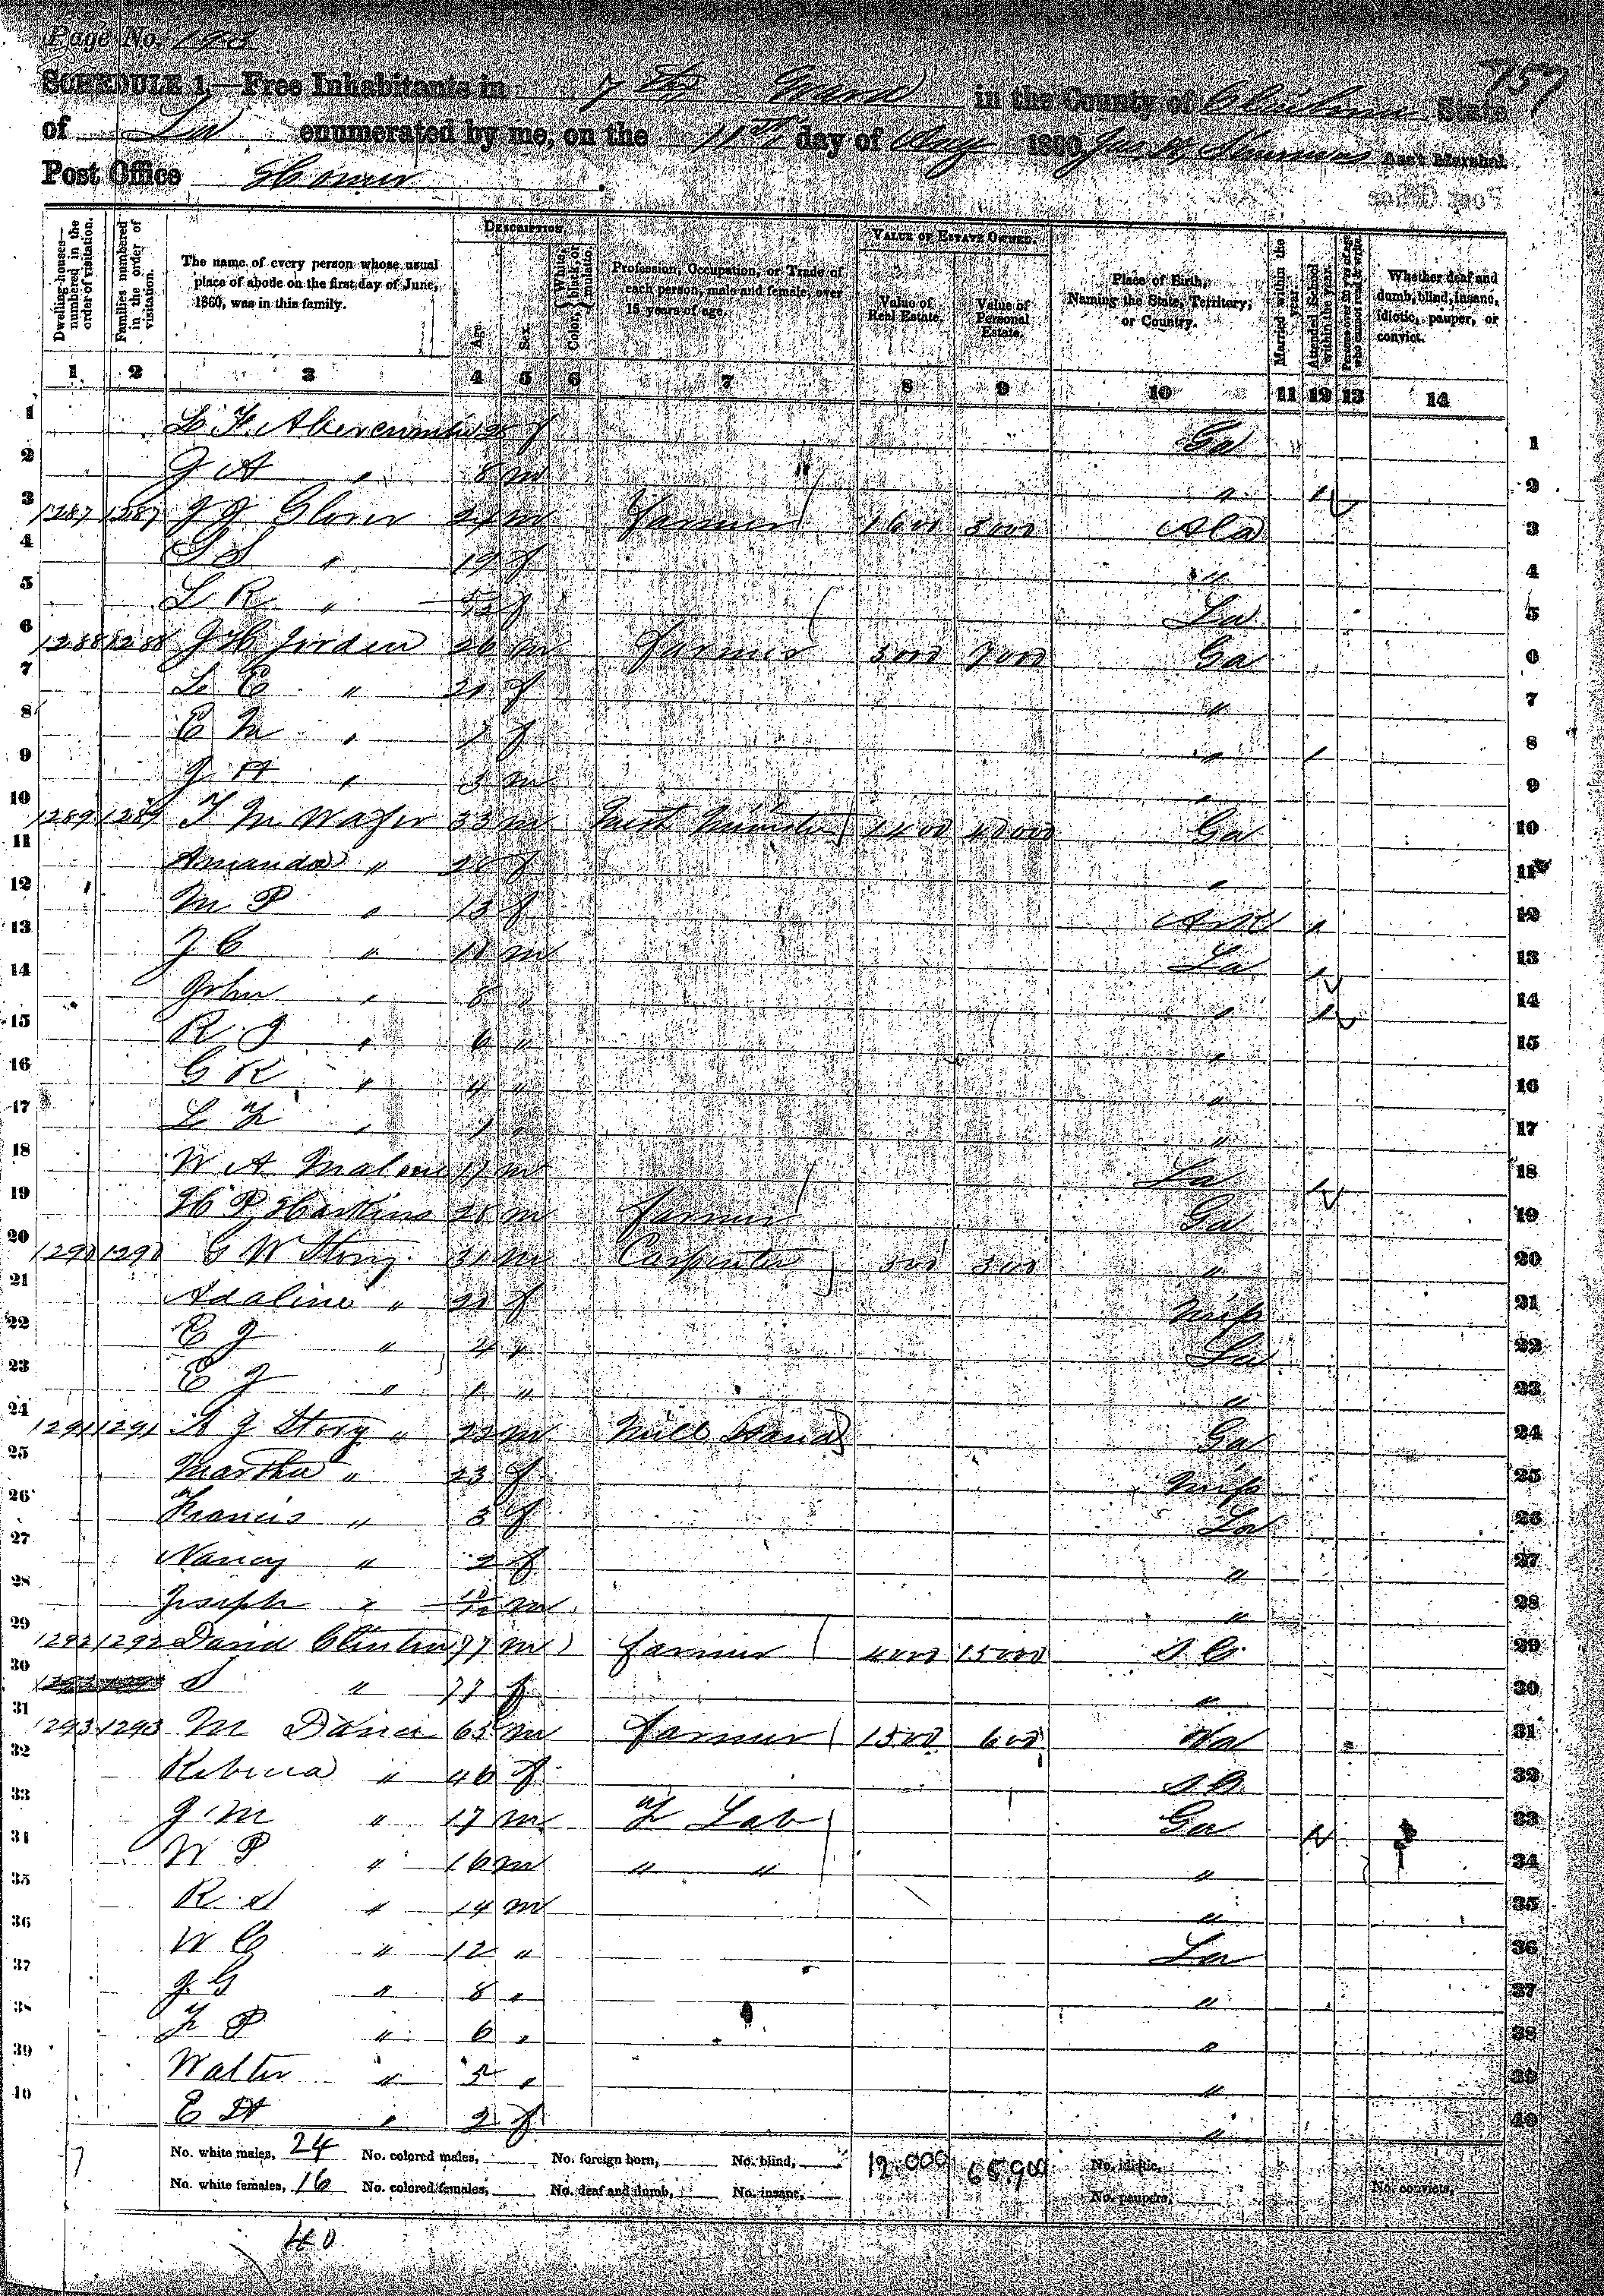 Page No. 193
757
SCHEDULE 1.—Free Inhabitants in 7th Ward in the County of Claiborne State
of La enumerated by me, on the 11th day of Aug 1860. Ass't Marshal
Post Office Homer
Dwelling-houses—numbered in the order of visitation.
Families numbered in the order of visitation.
The name of every person whose usual place of abode on the first day of June, 1860, was in this family.
DESCRIPTION.
Age.
Sex.
Color, White, black, or mulatto.
Profession, Occupation, or Trade of each person, male and female, over 15 years of age.
VALUE OF ESTATE OWNED.
Value of Real Estate.
Value of Personal Estate.
Place of Birth, Naming the State, Territory, or Country.
Married within the year.
Attended School within the year.
Persons over 20 y'rs of age who cannot read & write.
Whether deaf and dumb, blind, insane, idiotic, pauper, or convict.
1 2 3 4 5 6 7 8 9 10 11 12 13 14
1 Abercrombie f Ga 1
2 J A " 8 m " 2
3 1287 1287 J J Glover 24 m Farmer 1600 Ala 3
4 S " 19 f " 4
5 L R " f La 5
6 1288 1288 J H Jorden 26 m Farmer 3000 7000 Ga 6
7 " 21 f " 7
8 E M " 7 f " / 8
9 J H " 3 m " 9
10 1289 1289 T M Wafer 33 m Mist Minister 1400 40000 Ga 10
11 Amanda " 28 f " 11
12 M P " 13 f Ark / 12
13 J C " 11 m La / 13
14 John " 8 " " / 14
15 R J " 6 " " 15
16 G K " 4 " " 16
17 L F " 1 " " 17
18 W A Malone 17 m La / 18
19 H P Harkins 28 m Farmer Ga 19
20 1290 1290 G W Story 31 m Carpenter 500 300 " 20
21 Adaline " 21 f Miss 21
22 E J " 4 " La 22
23 E J " 1 " " 23
24 1291 1291 A J Story " 22 m Mill Hand Ga 24
25 Martha " 23 f Miss 25
26 Francis " 3 f La 26
27 Nancy " 2 f " 27
28 Joseph " 10/12 m " 28
29 1292 1292 David Clinton 77 m Farmer 4000 15000 S C 29
30 S " 77 f " 30
31 1293 1293 M Davis 65 m Farmer 1500 600 Va 31
32 Rebecca " 46 f S C 32
33 J M " 17 m F Lab Ga / 33
34 W P " 16 m " " " 34
35 R S " 14 m " 35
36 W C " 12 " La 36
37 J G " 8 " " 37
38 F P " 6 " " 38
39 Walter " 5 " " 39
40 E " 2 f " 40
No. white males, 24 No. colored males, No. foreign born, No. blind, 12.000 65.900 No. idiotic,
No. white females, 16 No. colored females, No. deaf and dumb, No. insane, No. paupers, No. convicts,
40